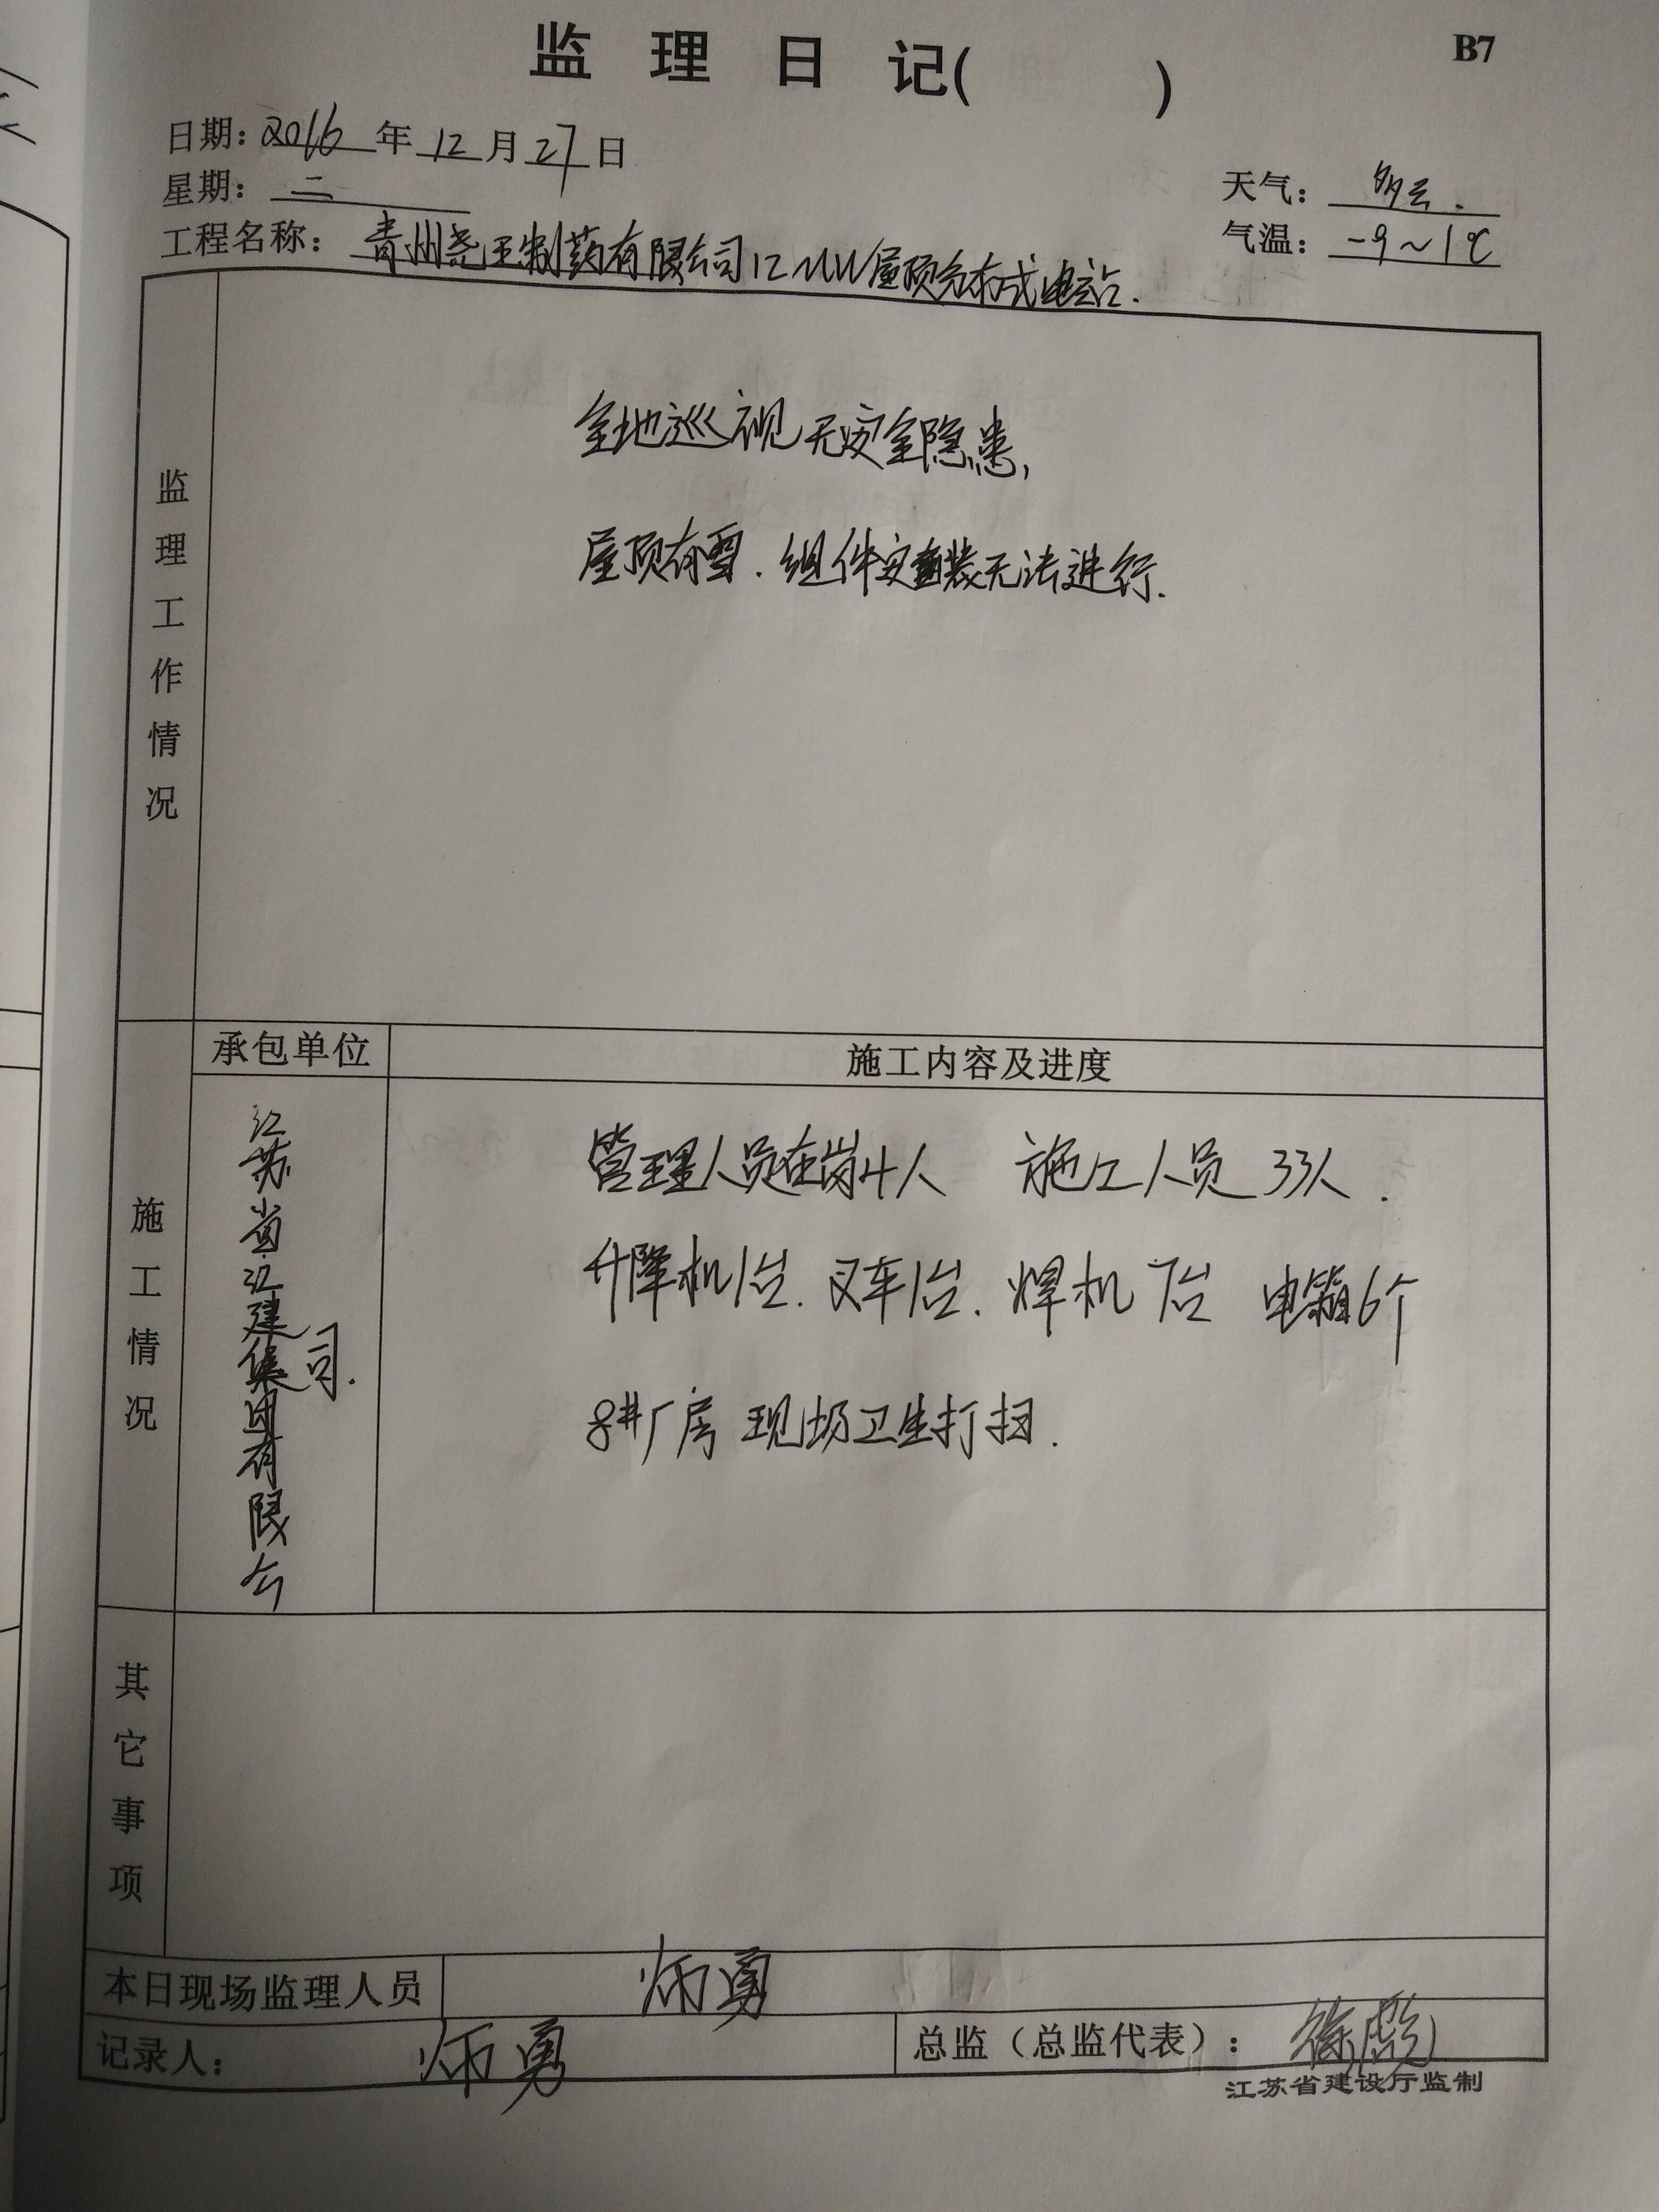 监理日记(    )
B7
日期:2016年12月27日
星期:二
天气:多云.
工程名称:青州尧王制药有限公司12MW屋顶分布式电站.
气温:-9~1℃
监理工作情况
全地巡视无安全隐患,
屋顶有雪.组件安装无法进行.
承包单位
施工内容及进度
施工情况
江苏省江建集团有限公司.
管理人员在岗4人 施工人员33人.
升降机1台.叉车1台.焊机7台 电箱6个
8#厂房 现场卫生打扫.
其它事项
本日现场监理人员
勇
记录人: 勇
总监(总监代表): 徐彪
江苏省建设厅监制